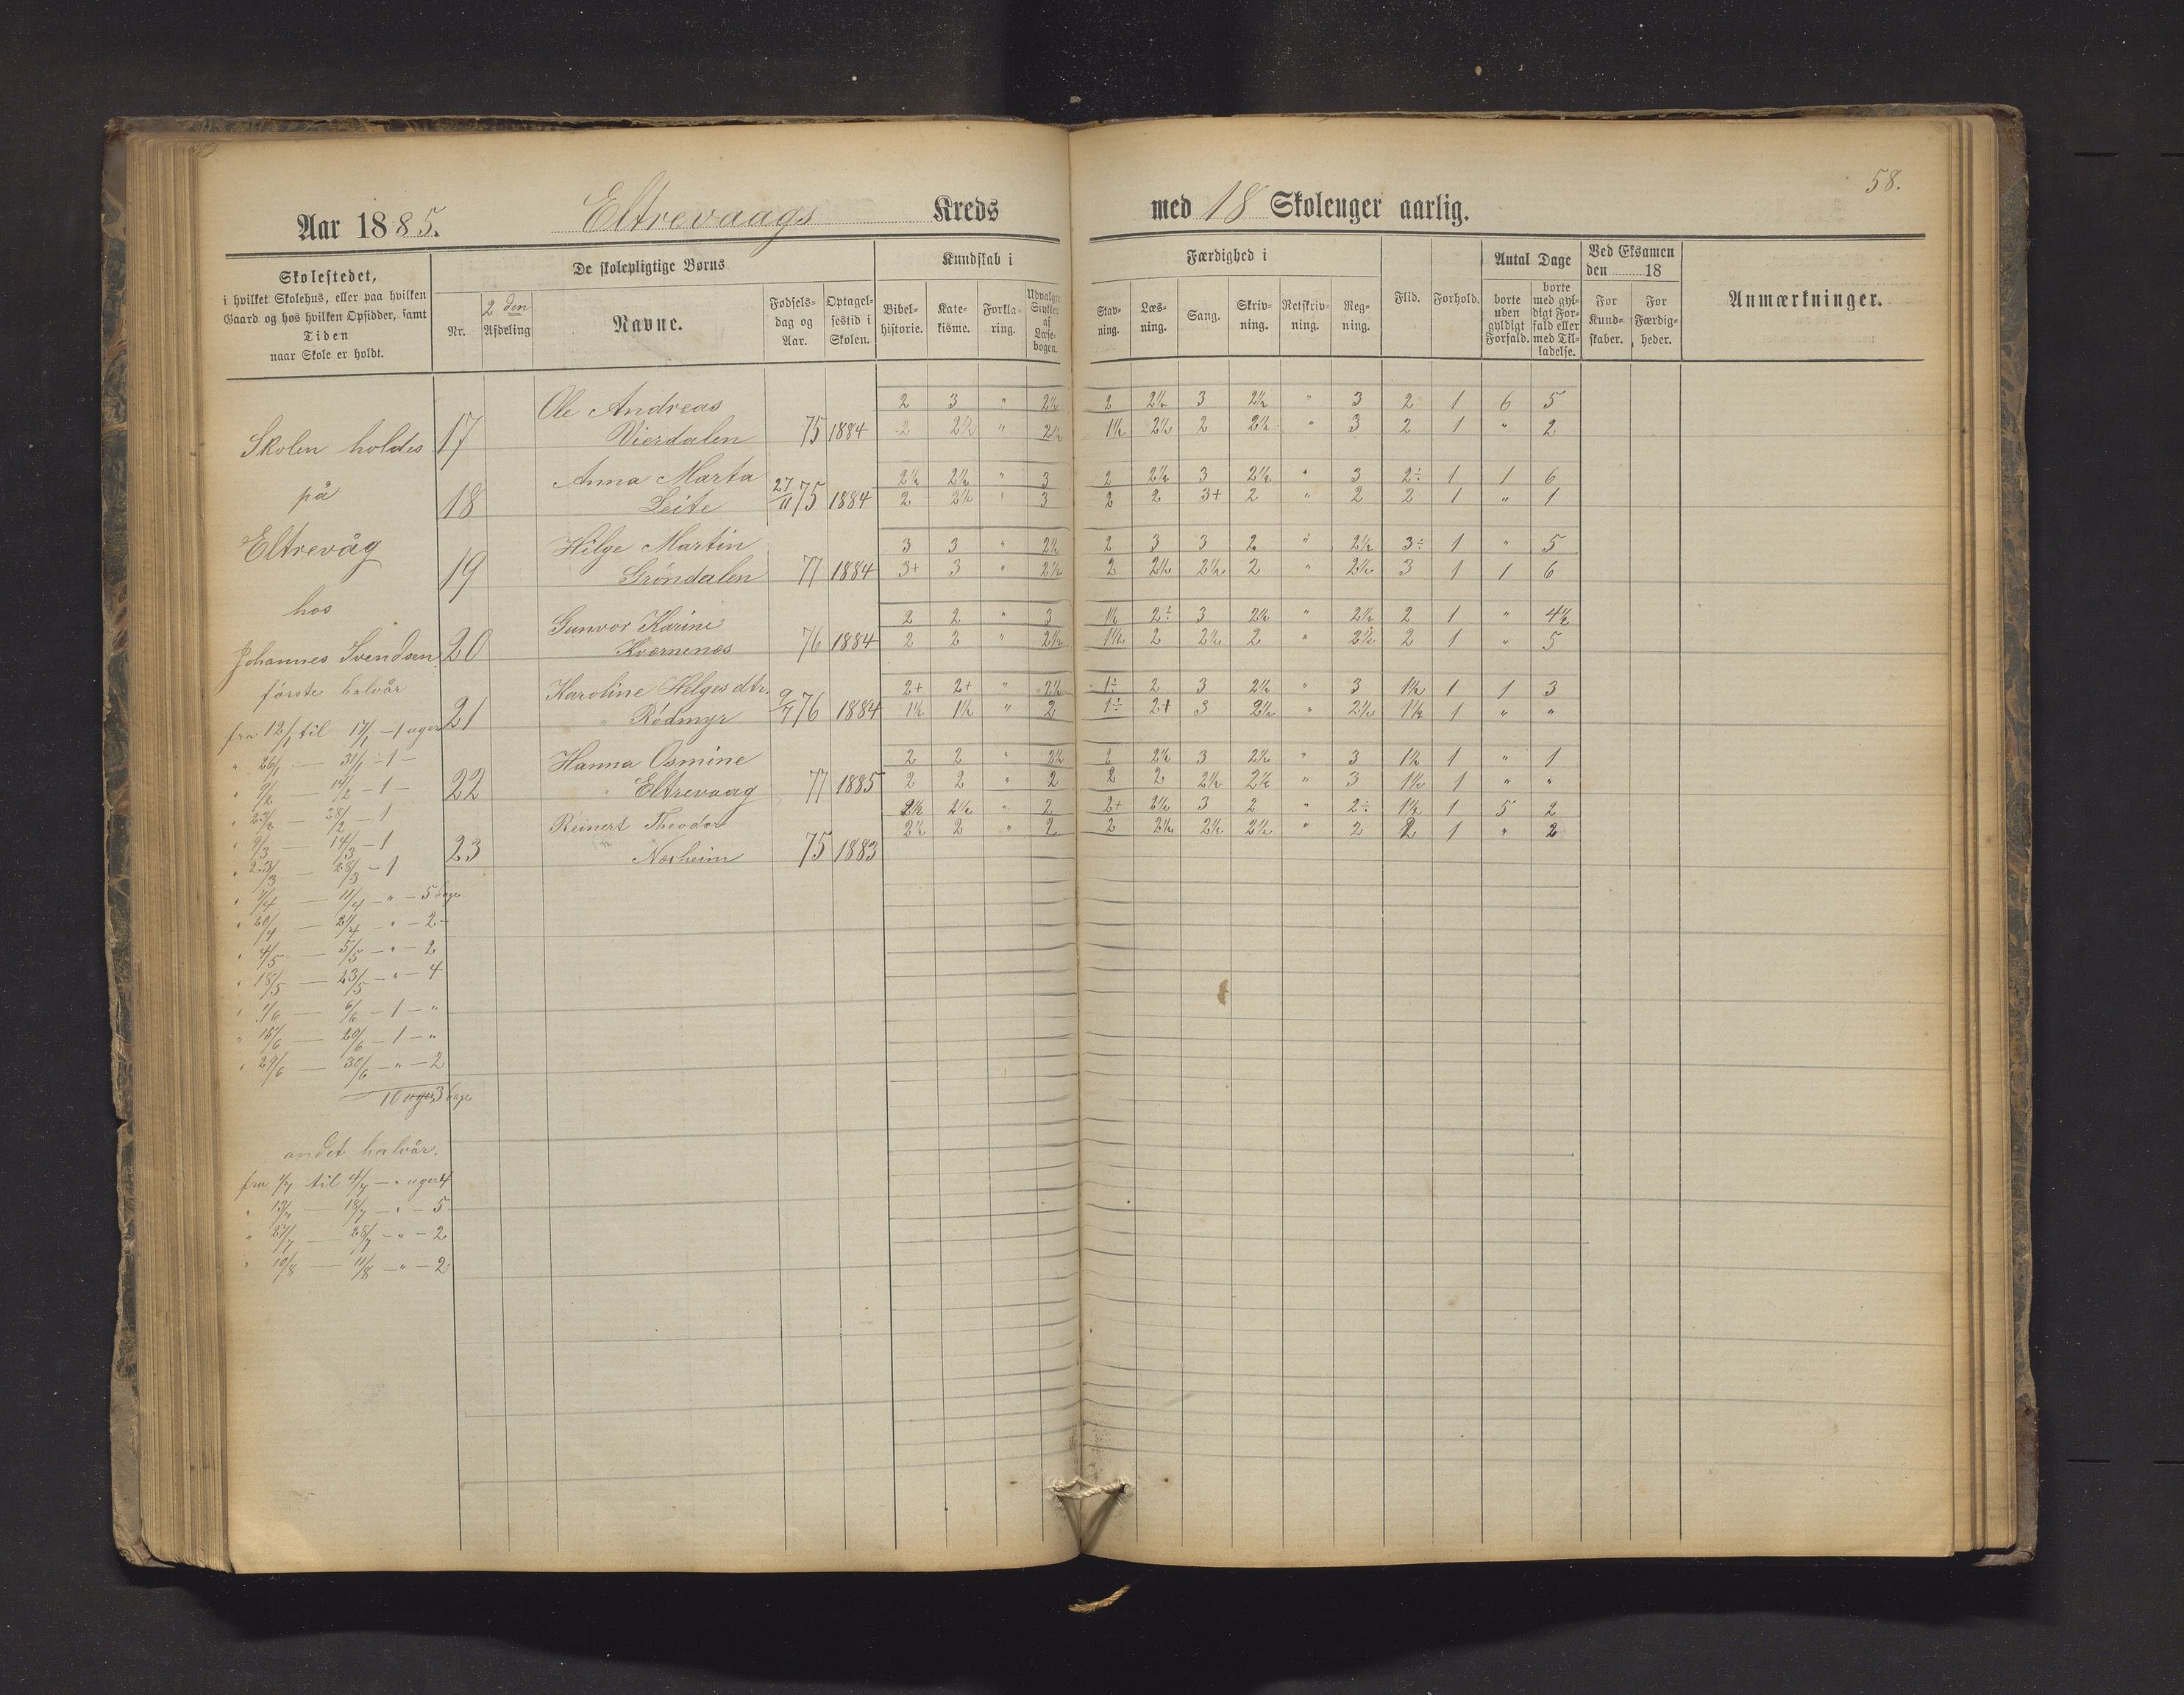 58.
Aar 1885. Eltrevaags Kreds med 18 Skoleuger aarlig.
Skolestedet,
i hvilket Skolehus, eller paa hvilken
Gaard og hos hvilken Opsidder, samt
Tiden
naar Skole er holdt.
De skolepligtige Børns
Nr.
2den
Afdeling
Navne.
Fødsels-
dag og
Aar.
Optagel-
sestid i
Skolen.
Kundskab i
Bibel-
historie.
Kate-
kisme.
Forkla-
ring.
Udvalgte
Stykker
af
Læse-
bogen.
Færdighed i
Stav-
ning.
Læs-
ning.
Sang.
Skriv-
ning.
Retskriv-
ning.
Reg-
ning.
Flid.
Forhold.
Antal Dage
borte
uden
gyldigt
Forfald.
borte
med gyl-
digt For-
fald eller
med Til-
ladelse.
Ved Eksamen
den 18
For
Kund-
skaber.
For
Færdig-
heder.
Anmærkninger.
Skolen holdes
på
Eltrevåg
hos
Johannes Svendsen
første halvår
fra 12/1 til 17/1 - 1 uger
" 26/1 — 31/1 - 1 -
" 9/2 — 14/2 - 1 -
" 23/2 — 28/2 - 1
" 9/3 — 14/3 - 1
" 23/3 — 28/3 - 1
" 7/4 — 11/4 - " - 5 dage
" 20/4 — 21/4 - " - 2 -
" 4/5 — 5/5 - " - 2
" 18/5 — 23/5 - " - 4
" 1/6 — 6/6 - 1 - "
" 15/6 — 20/6 - 1 - "
" 29/6 — 30/6 - " - 2
10 uger 3 dage
andet halvår.
fra 1/7 til 4/7 - " uger 4
" 13/7 — 18/7 - " - 5
" 27/7 — 28/7 - " - 2
" 10/8 — 11/8 - " - 2
17 Ole Andreas 2 3 " 2½ 2 2½ 3 2½ " 3 2 1 6 5
Vierdalen 75 1884 2 2½ " 2½ 1½ 2½ 2 2½ " 3 2 1 " 2
18 Anna Marta 27/11 75 2½ 2½ " 3 2 2½ 3 2½ " 3 2÷ 1 1 6
Leite 1884 2 2½ " 3 2 2 3+ 2 " 2 2 1 " 1
19 Hilge Martin 3 3 " 2½ 2 3 3 2 " 2½ 3÷ 1 " 5
Grøndalen 77 1884 3+ 3 " 2½ 2 2½ 2½ 2 " 2½ 3 1 1 6
20 Gunvor Karine 2 2 " 3 1½ 2÷ 3 2½ " 2½ 2 1 " 4½
Kvernenes 76 1884 2 2 " 2½ 1½ 2 2½ 2 " 2½ 2 1 " 5
21 Karoline Helgesdtr. 9/7 76 2+ 2+ " 2½ 1÷ 2 3 2½ " 3 1½ 1 1 3
" Rødmyr 1884 1½ 1½ " 2 1÷ 2+ 3 2½ " 2½ 1½ 1 " "
22 Hanna Osmine 2 2 " 2½ 2 2½ 3 2½ " 3 1½ 1 " 1
" Eltrevaag 77 1885 2 2 " 2 2 2 2½ 2½ " 3 1½ 1 " "
23 Reinert Theodor 2½ 2½ " 2 2+ 2½ 3 2 " 2÷ 1½ 1 5 2
Nesheim 75 1883 2½ 2 " 2 2 2½ 2½ 2½ " 2 2 1 " 2